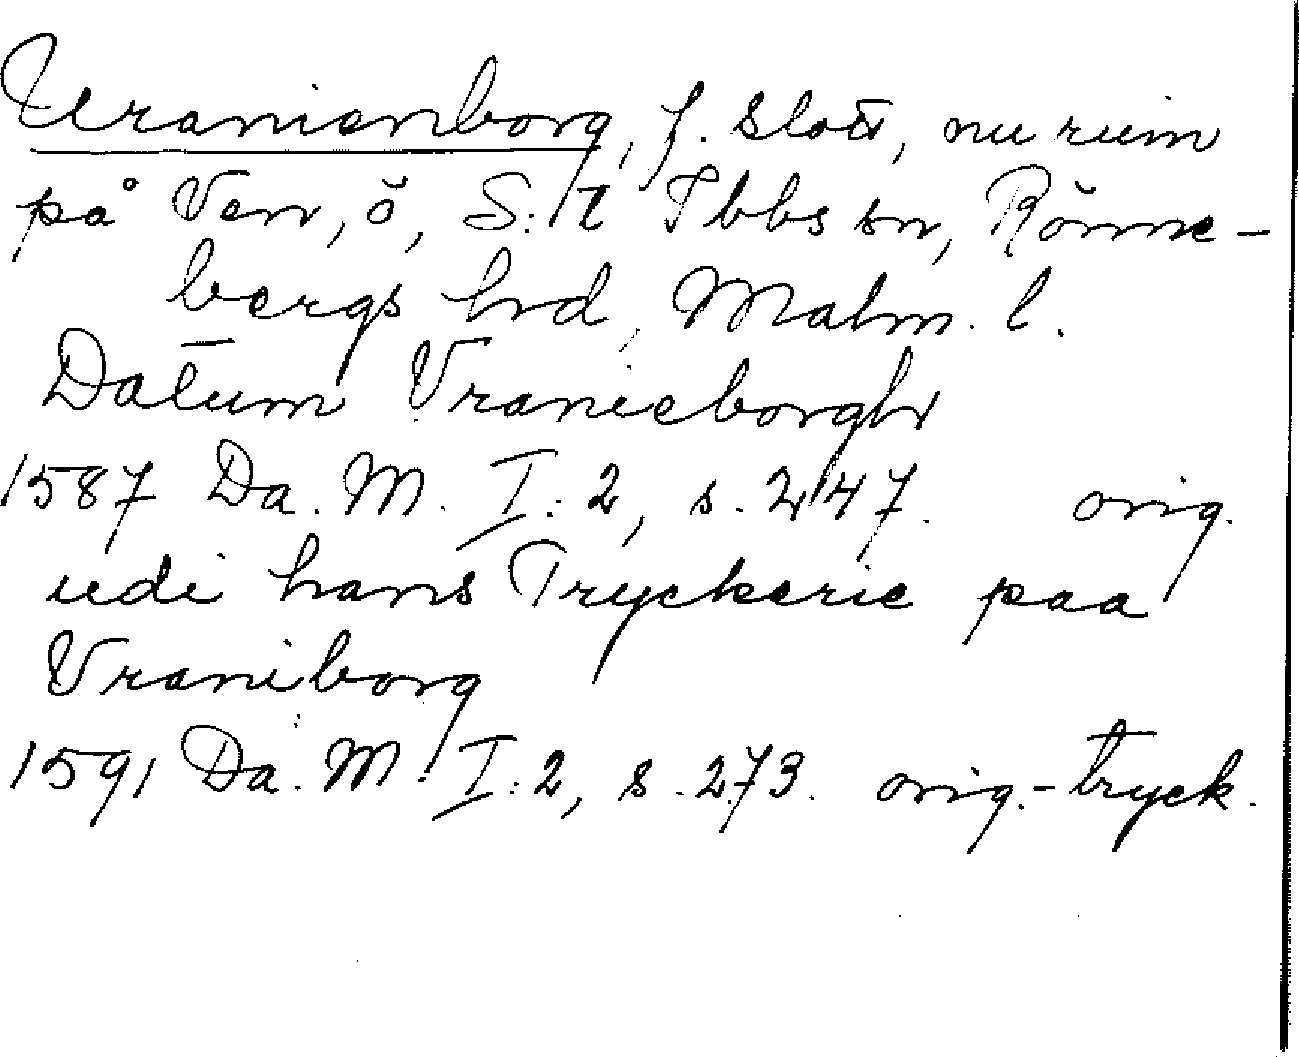 Uranienborg, f. slott, nu ruin
på Ven, ö, S:t Ibbs sn, Rönne-
bergs hrd, Malm. l.
Datum Vranieborgh
1587 Da. M. I:2, s. 247. orig.
udi hans Tryckerie paa
Vraniborg
1591 Da. M. I:2, s. 273. orig.-tryck.